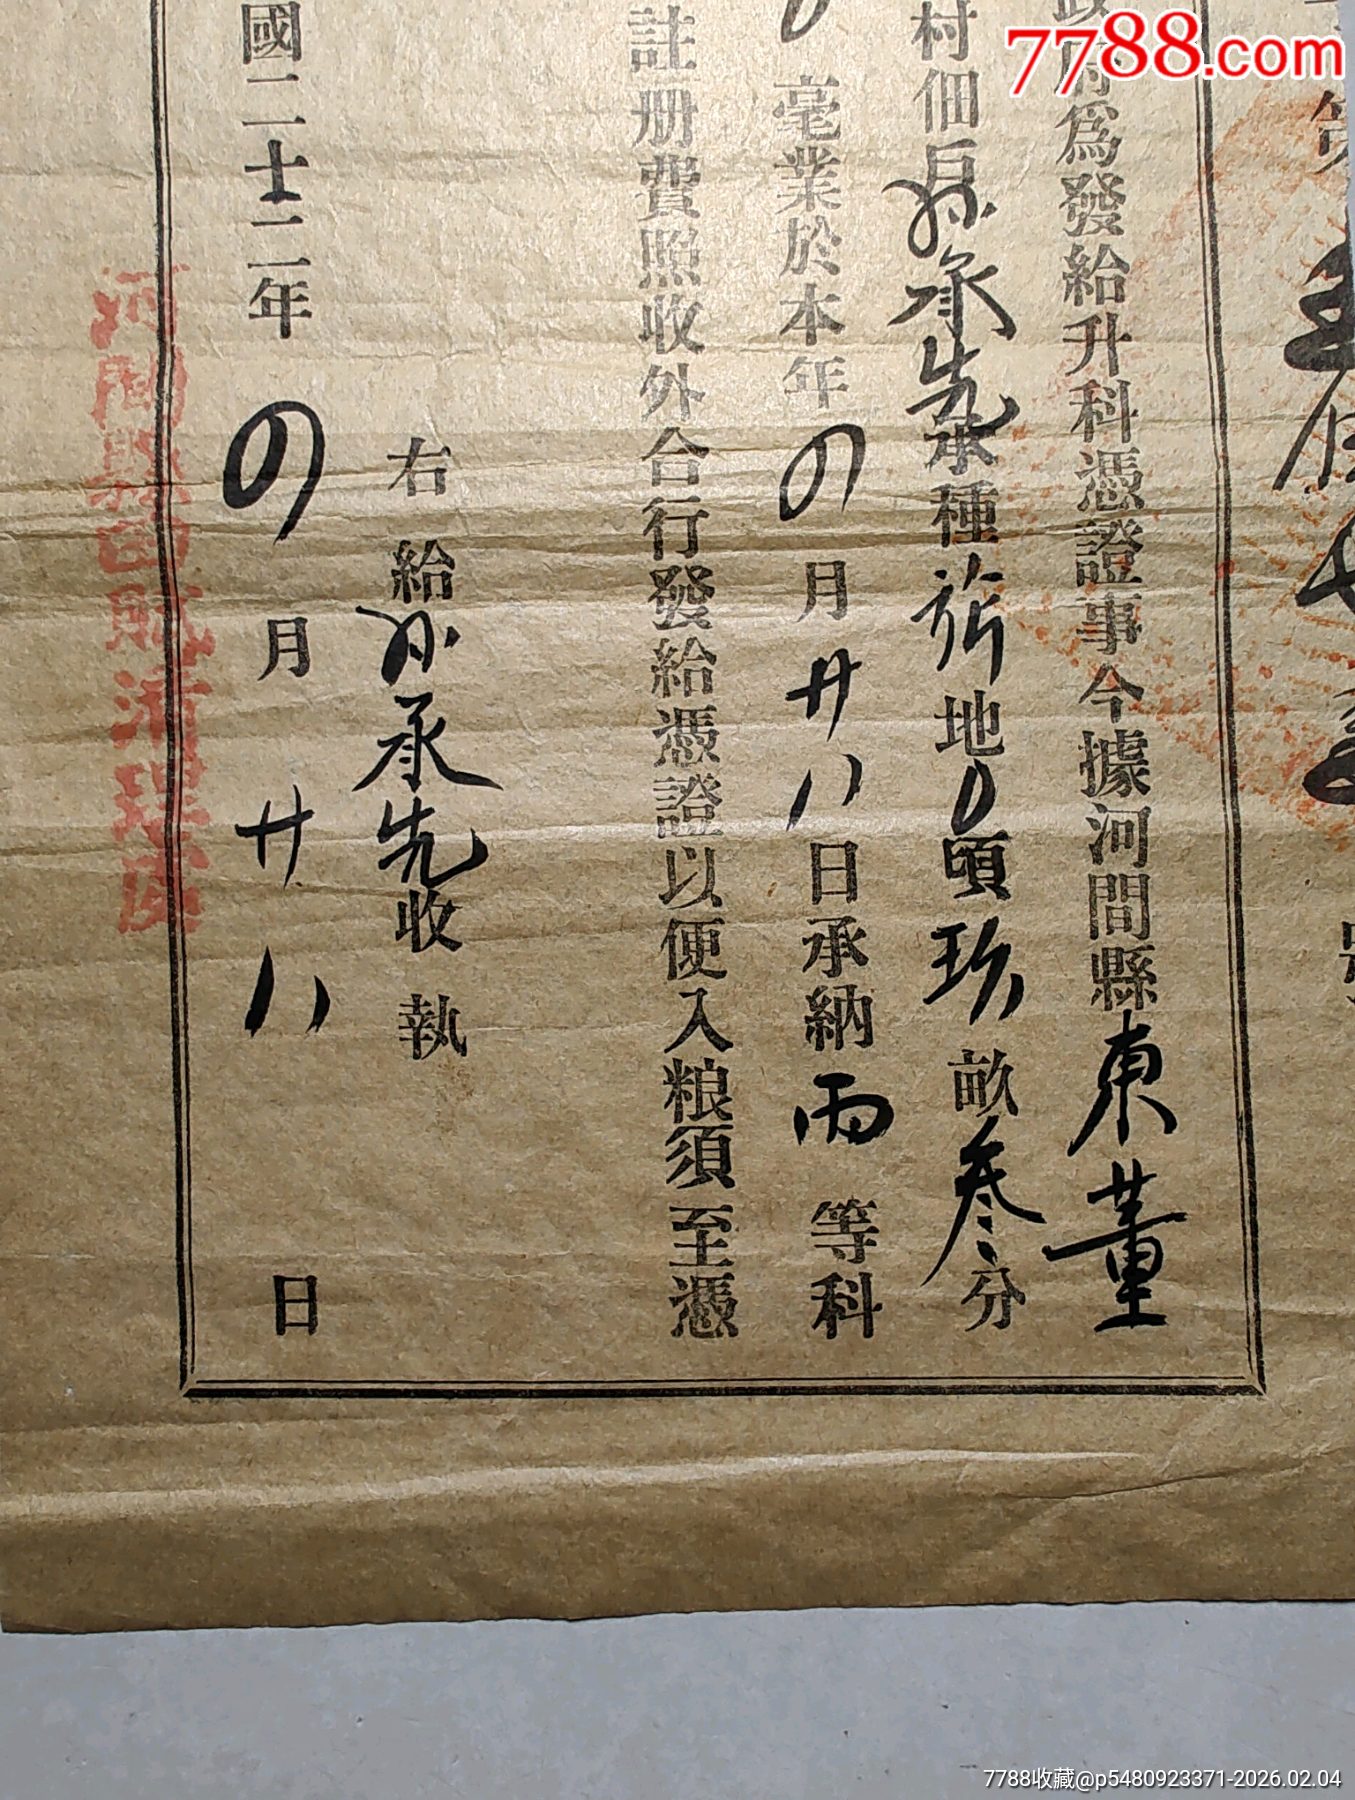 7788.com
政府為發給升科憑證事今據河間縣東董
村佃戶孫承先承種旂地0頃玖畝叁分
0毫業於本年四月廿八日承納兩等科
註册費照收外合行發給憑證以便入粮須至憑
右給孫承先收執
國二十二年四月廿八日
河間縣田賦清理處
7788收藏@p5480923371-2026.02.04